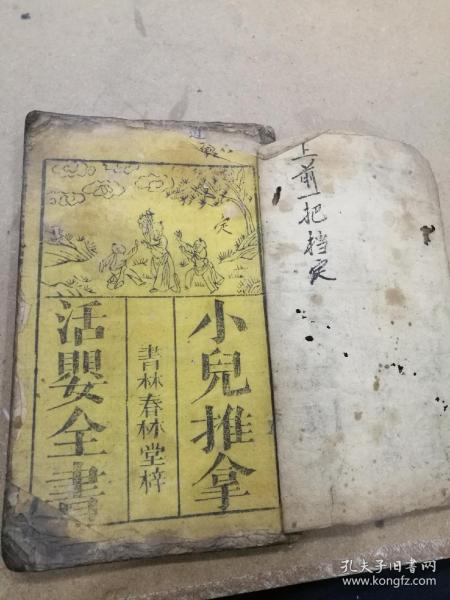 上前一把档定
定
小兒推拿
書林春林堂梓
活嬰全書
孔夫子旧书网
www.kongfz.com